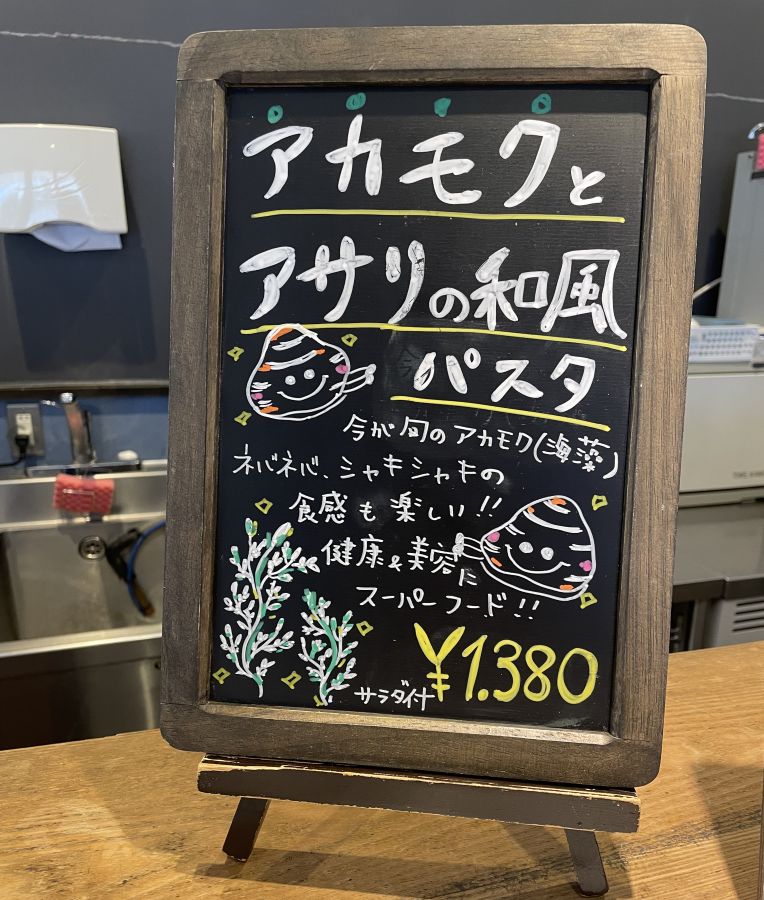 アカモクと
アサリの和風
パスタ
今が旬のアカモク(海藻)
ネバネバ、シャキシャキの
食感も楽しい!!
健康&美容に
スーパーフード!!
サラダ付
¥1.380